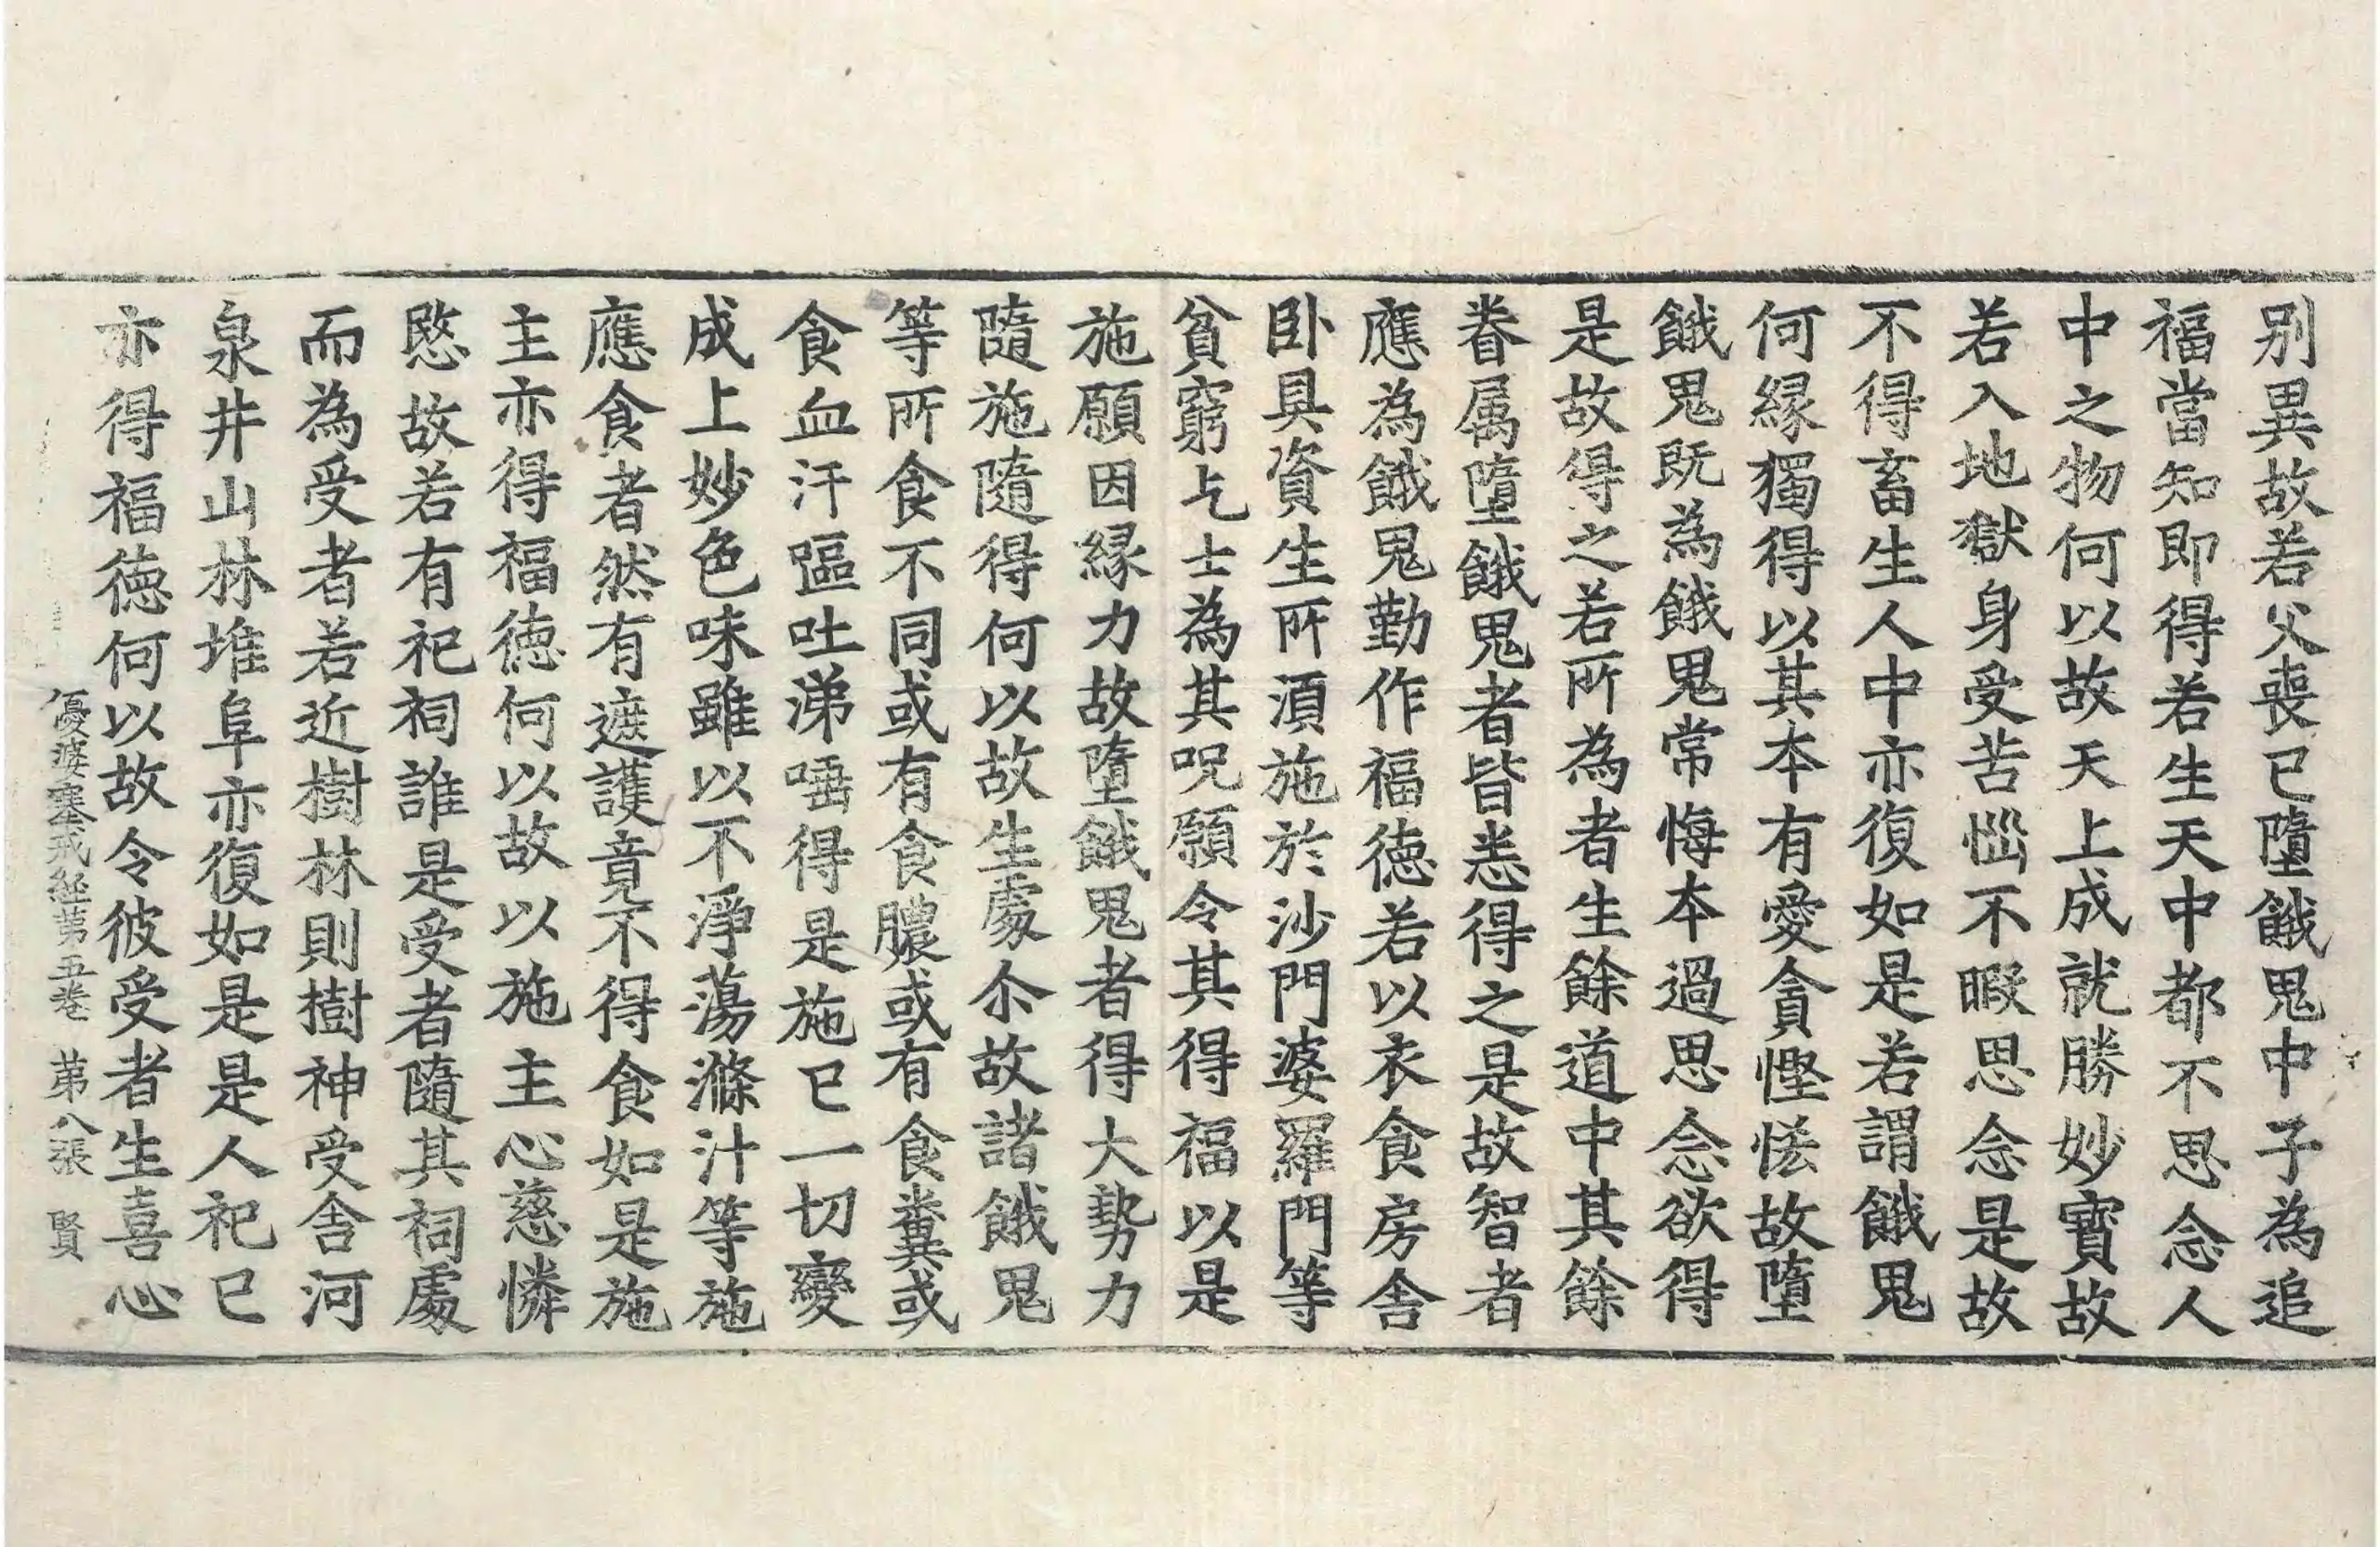 别異故若父喪已墮餓鬼中子為追
福當知即得若生天中都不思念人
中之物何以故天上成就勝妙寶故
若入地獄身受苦惱不暇思念是故
不得畜生人中亦復如是若謂餓鬼
何緣獨得以其本有愛貪慳悋故墮
餓鬼既為餓鬼常悔本過思念欲得
是故得之若所為者生餘道中其餘
眷属墮餓鬼者皆悉得之是故智者
應為餓鬼勤作福德若以衣食房舍
卧具資生所須施於沙門婆羅門等
貧窮乞士為其呪願令其得福以是
施願因緣力故墮餓鬼者得大勢力
隨施隨得何以故生處尒故諸餓鬼
等所食不同或有食膿或有食糞或
食血汗嘔吐涕唾得是施已一切變
成上妙色味雖以不淨蕩滌汁等施
應食者然有遮護竟不得食如是施
主亦得福德何以故以施主心慈憐
愍故若有祀祠誰是受者隨其祠處
而為受者若近樹林則樹神受舍河
泉井山林堆阜亦復如是是人祀已
亦得福德何以故令彼受者生喜心
優婆塞戒經第五卷　第八張　賢